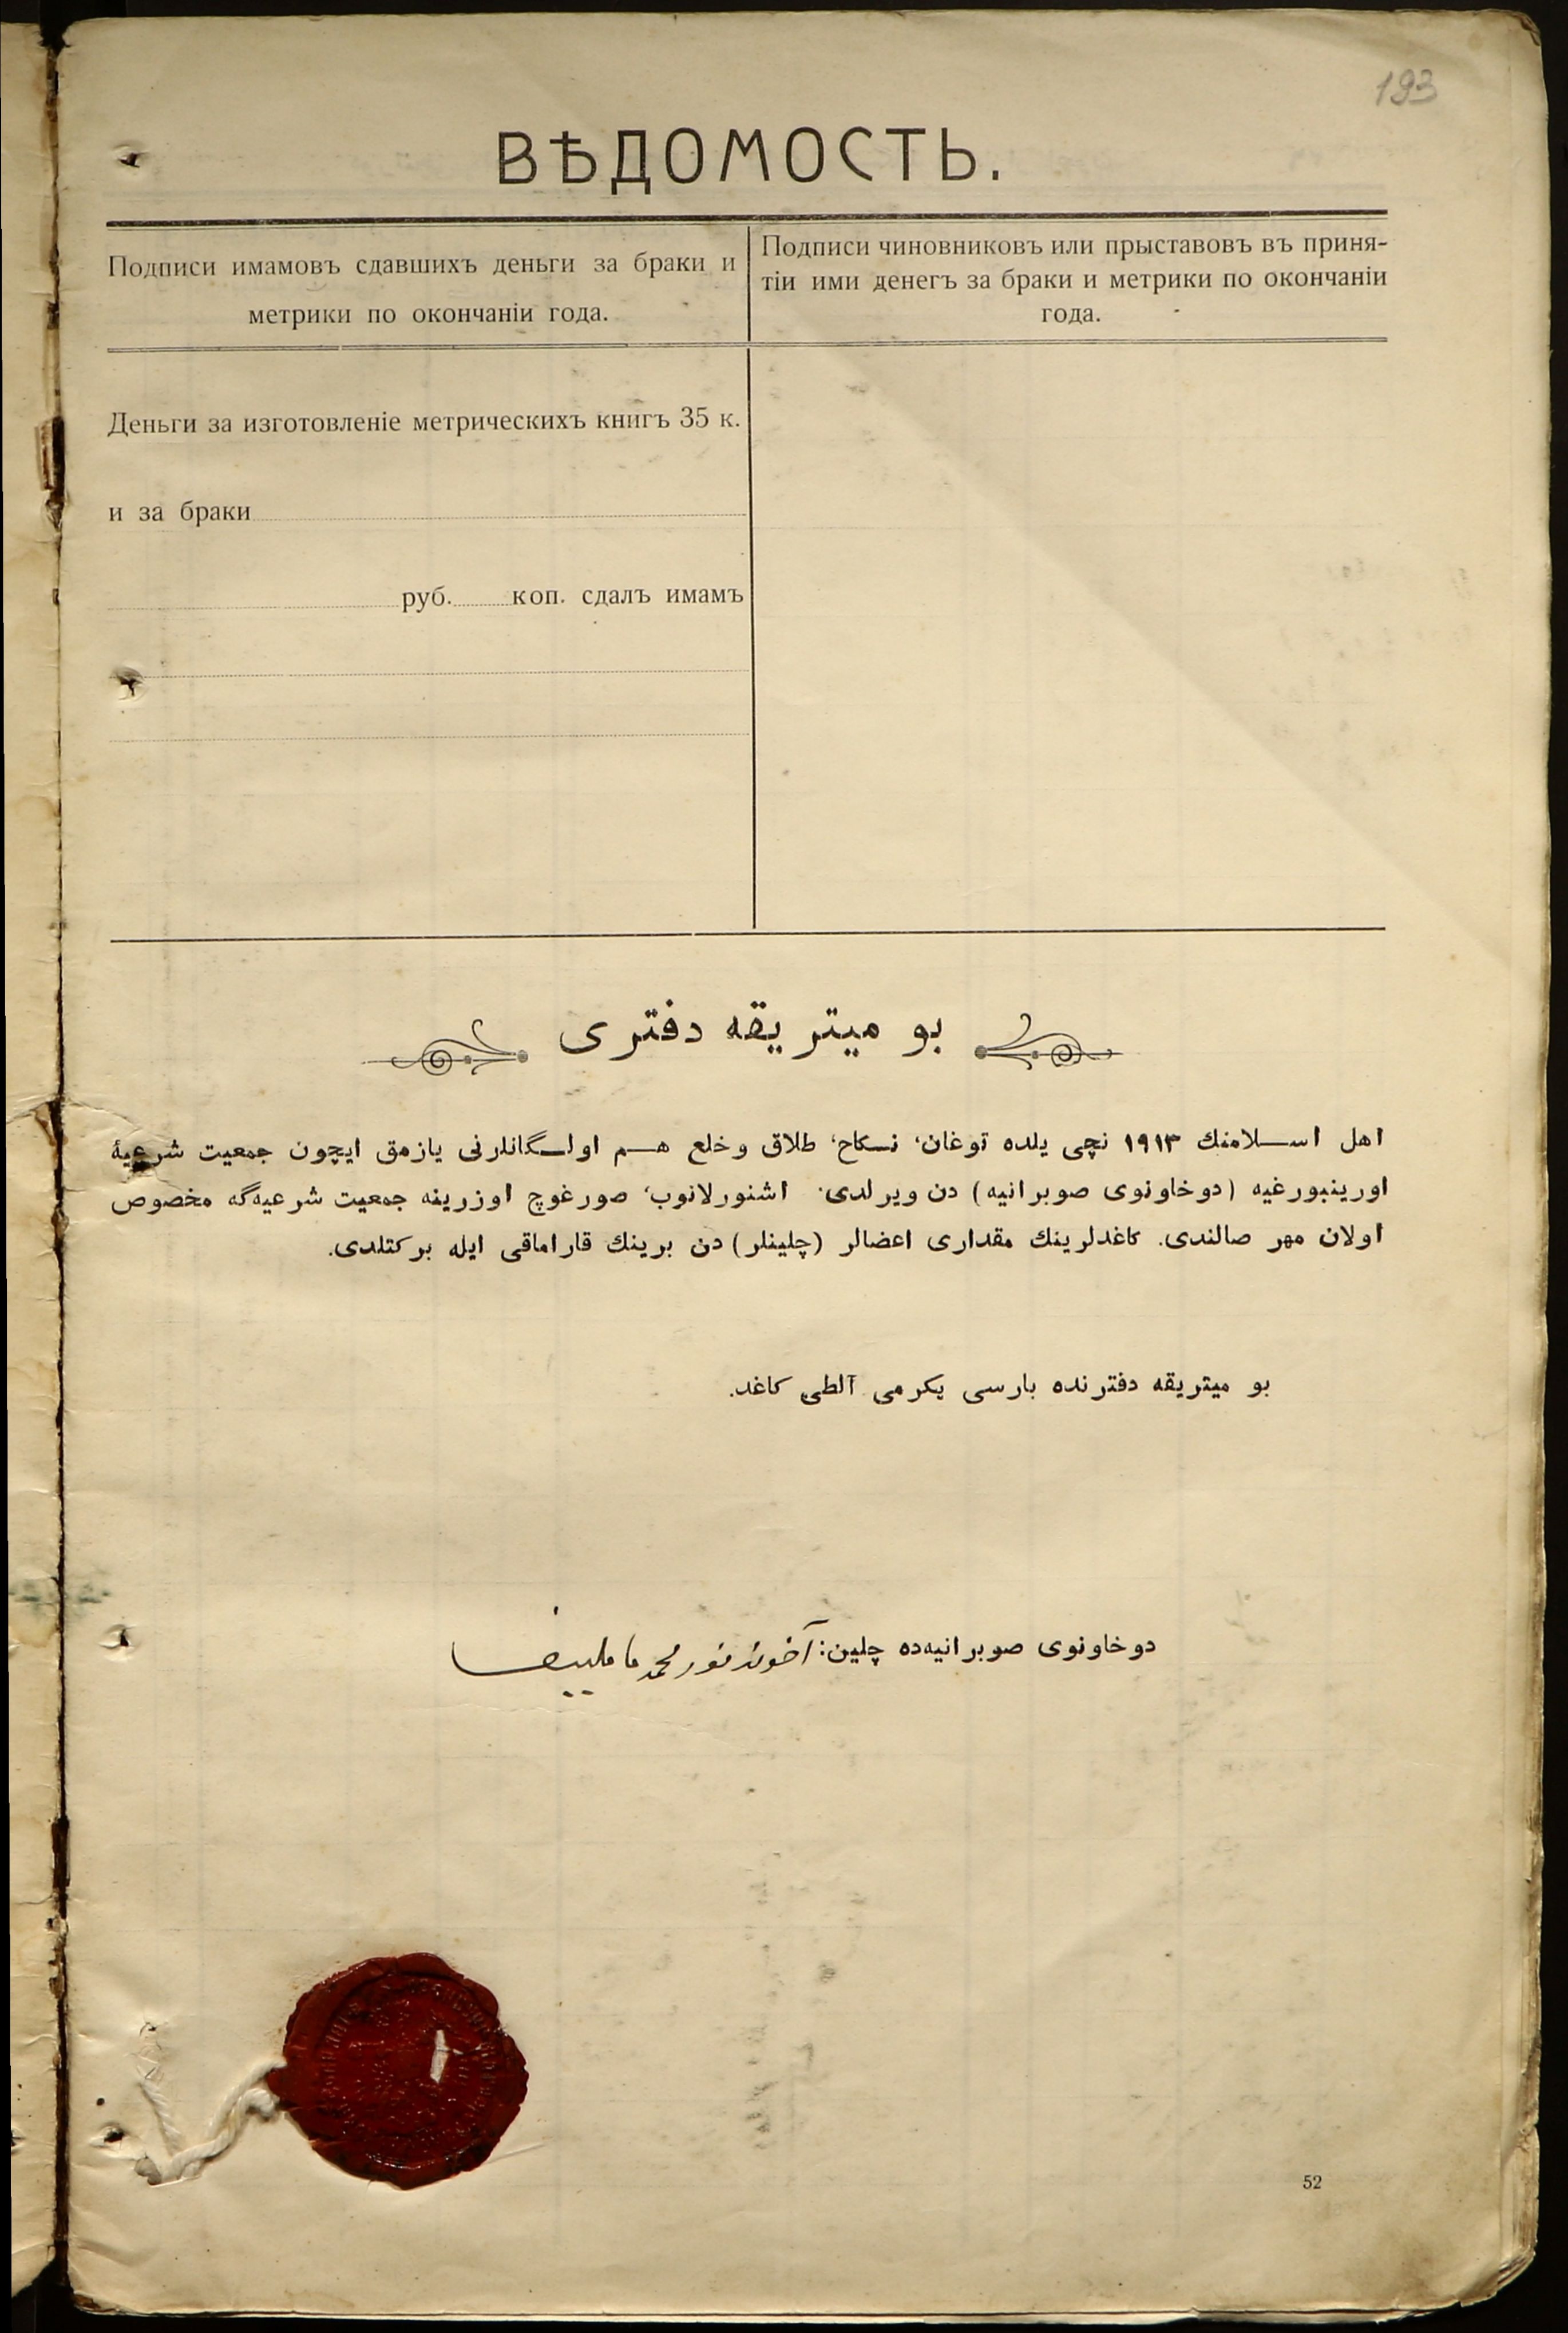 193
ВѢДОМОСТЬ.
Подписи имамовъ сдавшихъ деньги за браки и
метрики по окончаніи года.
Подписи чиновниковъ или прыставовъ въ приня-
тіи ими денегъ за браки и метрики по окончаніи
года.
Деньги за изготовленіе метрическихъ книгъ 35 к.
и за браки
руб. коп. сдалъ имамъ
بو ميتريقه دفترى
اهل اسلامنك ١٩١٣ نچى يلده توغان، نكاح، طلاق وخلع هم اولگانلرنى يازمق ايچون جمعيت شرعيۀ
اورينبورغيه (دوخاونوى صوبرانيه) دن ويرلدى. اشنورلانوب، صورغوچ اوزرينه جمعيت شرعيه‌گه مخصوص
اولان مهر صالندى. كاغدلرينك مقدارى اعضالر (چلينلر) دن برينك قاراماقى ايله بركتلدى.
بو ميتريقه دفترنده بارسى يكرمى آلطى كاغد.
دوخاونوى صوبرانيه‌ده چلين: آخوند نور محمد
52